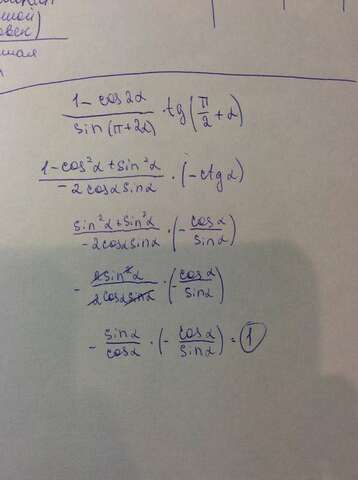 шой)
овек)
\frac{1-cos2α}{sin(π+2α)} · tg(\frac{π}{2}+α)
\frac{1-cos²α+sin²α}{-2cosαsinα} · (-ctgα)
\frac{sin²α+sin²α}{-2cosαsinα} · (-\frac{cosα}{sinα})
-\frac{2sin²α}{2cosαsinα} · (-\frac{cosα}{sinα})
-\frac{sinα}{cosα} · (-\frac{cosα}{sinα}) = 1